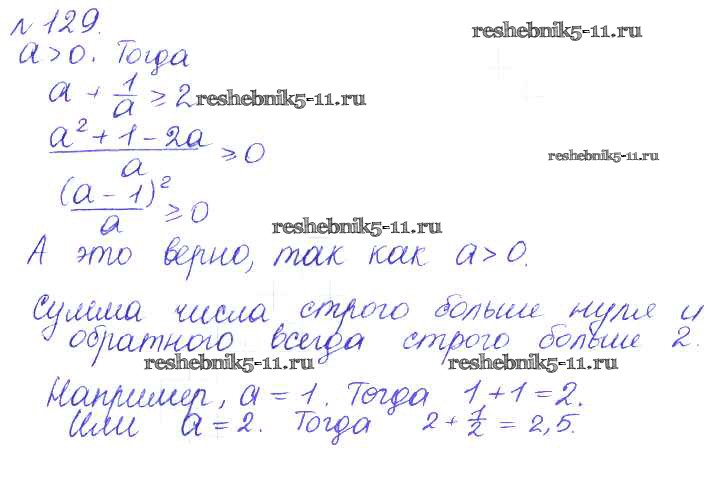 № 129.
reshebnik5-11.ru
a > 0. Тогда
a + 1/a ≥ 2
reshebnik5-11.ru
(a² + 1 - 2a)/a ≥ 0
reshebnik5-11.ru
(a - 1)²/a ≥ 0
reshebnik5-11.ru
А это верно, так как a > 0.
Сумма числа строго больше нуля и
обратного всегда строго больше 2.
reshebnik5-11.ru
reshebnik5-11.ru
Например, a = 1. Тогда 1 + 1 = 2.
Или a = 2. Тогда 2 + 1/2 = 2,5.